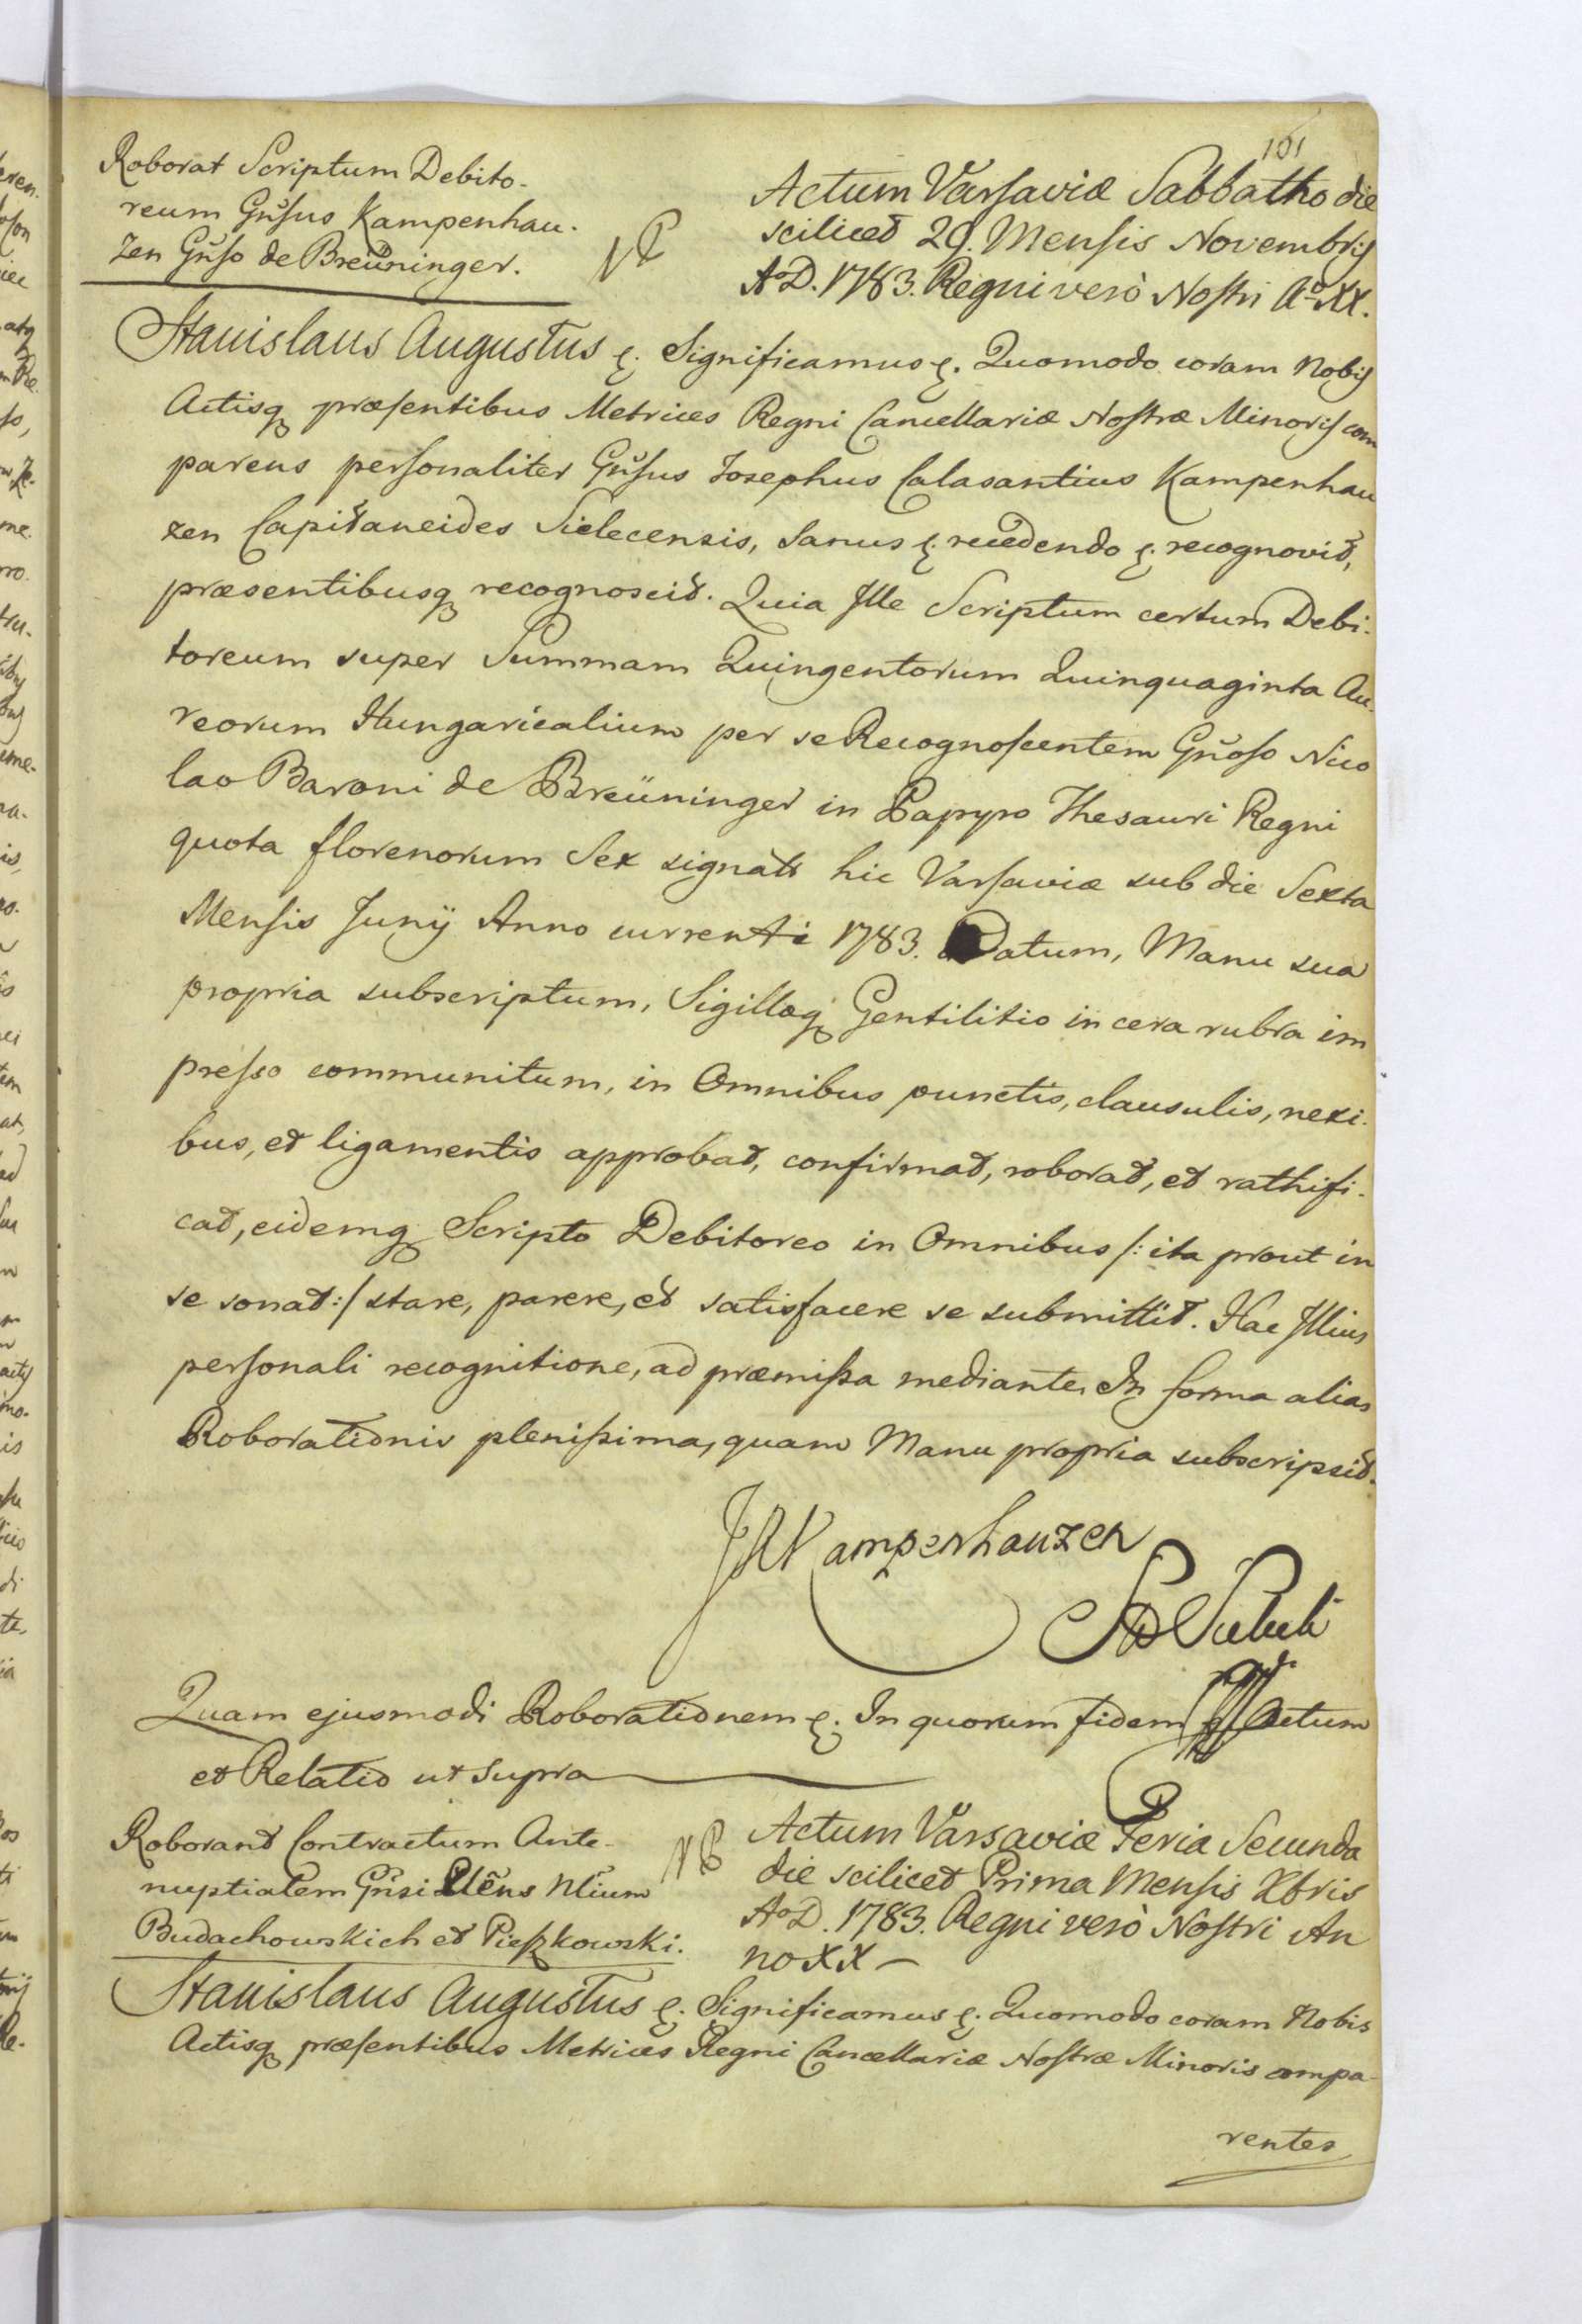 161
Roborat Scriptum Debito-
reum Gnsus Kampenhau-
zen Gnso de Breüninger.
NB
Actum Varsaviæ Sabbatho die
scilicet 29. Mensis Novembris
AoD. 1783. Regni verò Nostri Ao XX.
Stanislaus Augustus &. Significamus &. Quomodo coram Nobis
Actisq præsentibus Metrices Regni Cancellariæ Nostræ Minoris com
parens personaliter Gnsus Josephus Calasantius Kampenhau
zen Capitaneides Sielecensis, Sanus &. recedendo &. recognovit,
præsentibusq recognoscit. Quia Ille Scriptum certum Debi-
toreum super Summam Quingentorum Quinquaginta Au-
reorum Hungaricalium per se Recognoscentem Gnoso Nico
lao Baroni de Breüninger in Papyro Thesauri Regni
quota florenorum Sex signata hic Varsaviæ sub die Sexta
Mensis Junij Anno currenti 1783. Datum, Manu sua
propria subscriptum, Sigilloq Gentilitio in cera rubra im
presso communitum, in Omnibus punctis, clausulis, nexi-
bus, et ligamentis approbat, confirmat, roborat, et rathifi-
cat, eidemq Scripto Debitoreo in Omnibus /: ita prout in
se sonat :/ stare, parere, et satisfacere se submittit. Hac Illius
personali recognitione, ad præmissa mediante. In forma alias
Roborationis plenissima, quam Manu propria subscripsit.
JKKampenhauzen
Quam ejusmodi Roborationem &. In quorum fidem Actum
et Relatio ut Supra
Roborant Contractum Ante-
nuptialem Gnsi Nlium
Budachowskich et Pieszkowski.
NB
Actum Varsaviæ Feria Secunda
die scilicet Prima Mensis Xbris
AoD. 1783. Regni verò Nostri An
no XX
Stanislaus Augustus &. Significamus &. Quomodo coram Nobis
Actisq præsentibus Metrices Regni Cancellariæ Nostræ Minoris compa-
rentes